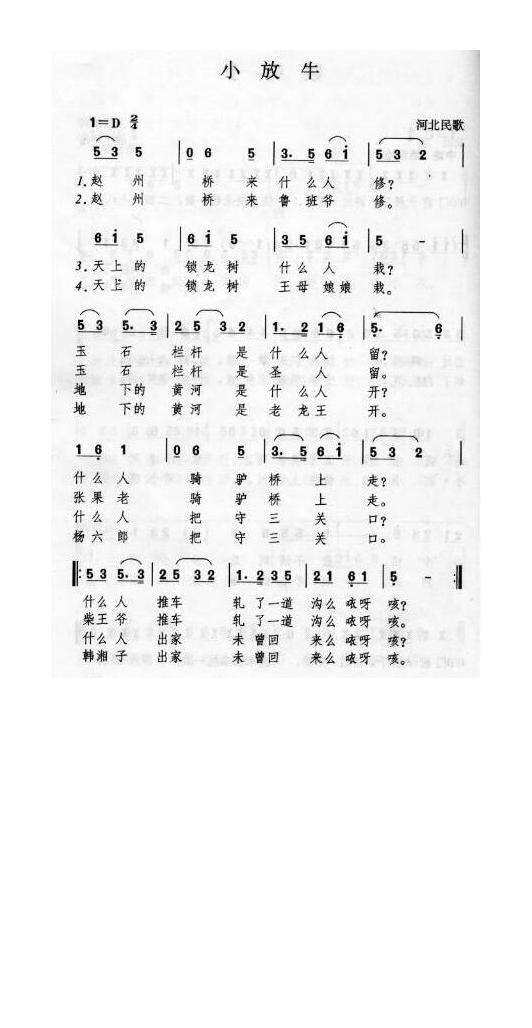 小放牛
1=D 2/4 河北民歌
5 3 5 | 0 6 5 | 3. 5 6 i | 5 3 2 |
1.赵州桥来什么人修?
2.赵州桥来鲁班爷修。
6 i 5 | 6 i 5 | 3. 5 6 i | 5 - |
3.天上的锁龙树什么人栽?
4.天上的锁龙树王母娘娘栽。
5 3 5. 3 | 2 5 3 2 | 1. 2 1 6 | 5. 6 |
玉石栏杆是什么人留?
玉石栏杆是圣人留。
地下的黄河是什么人开?
地下的黄河是老龙王开。
1 6 1 | 0 6 5 | 3. 5 6 i | 5 3 2 |
什么人骑驴桥上走?
张果老骑驴桥上走。
什么人把守三关口?
杨六郎把守三关口。
5 3 5. 3 | 2 5 3 2 | 1. 2 3 5 | 2 1 6 1 | 5 -
什么人推车轧了一道沟么咴呀咳?
柴王爷推车轧了一道沟么咴呀咳。
什么人出家未曾回来么咴呀咳?
韩湘子出家未曾回来么咴呀咳。